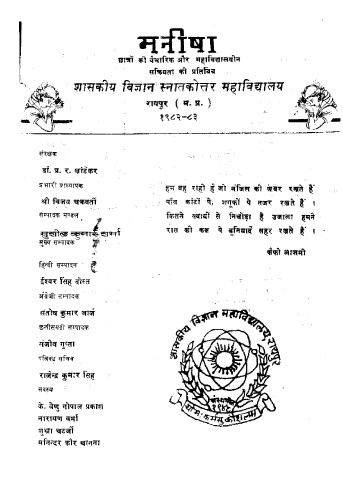 मनीषा
छात्रों की वैचारिक और महाविद्यालयीन
सक्रियता की प्रतिबिंब
शासकीय विज्ञान स्नातकोत्तर महाविद्यालय
रायपुर ( म. प्र. )
१९८२-८३
संरक्षक
डॉ. प्र. र. खांडेकर
प्रभारी प्राध्यापक
श्री विजय चक्रवर्ती
सम्पादक मण्डल
सुशील कुमार शर्मा
मुख्य सम्पादक
हिन्दी सम्पादक
ईश्वर सिंह दोस्त
अंग्रेजी सम्पादक
संतोष कुमार जार्ज
छत्तीसगढ़ी सम्पादक
संजीव गुप्ता
सचिव
राजेन्द्र कुमार सिंह
सदस्य
के. वेणु गोपाल प्रकाश
नारायण वर्मा
सुधा चटर्जी
मनिन्दर कौर चानना
हम वह राही हैं जो मंजिल की खबर रखते हैं
पाँव कांटों पे, शगूफों पे नजर रखते हैं ।
कितने ख्वाबों से निचोड़ा है उजाला हमने
रात की कब्र पे बुनियादें सहर रखते हैं ।
कैफी आजमी
शासकीय विज्ञान महाविद्यालय, रायपुर
योगः कर्मसु कौशलम्